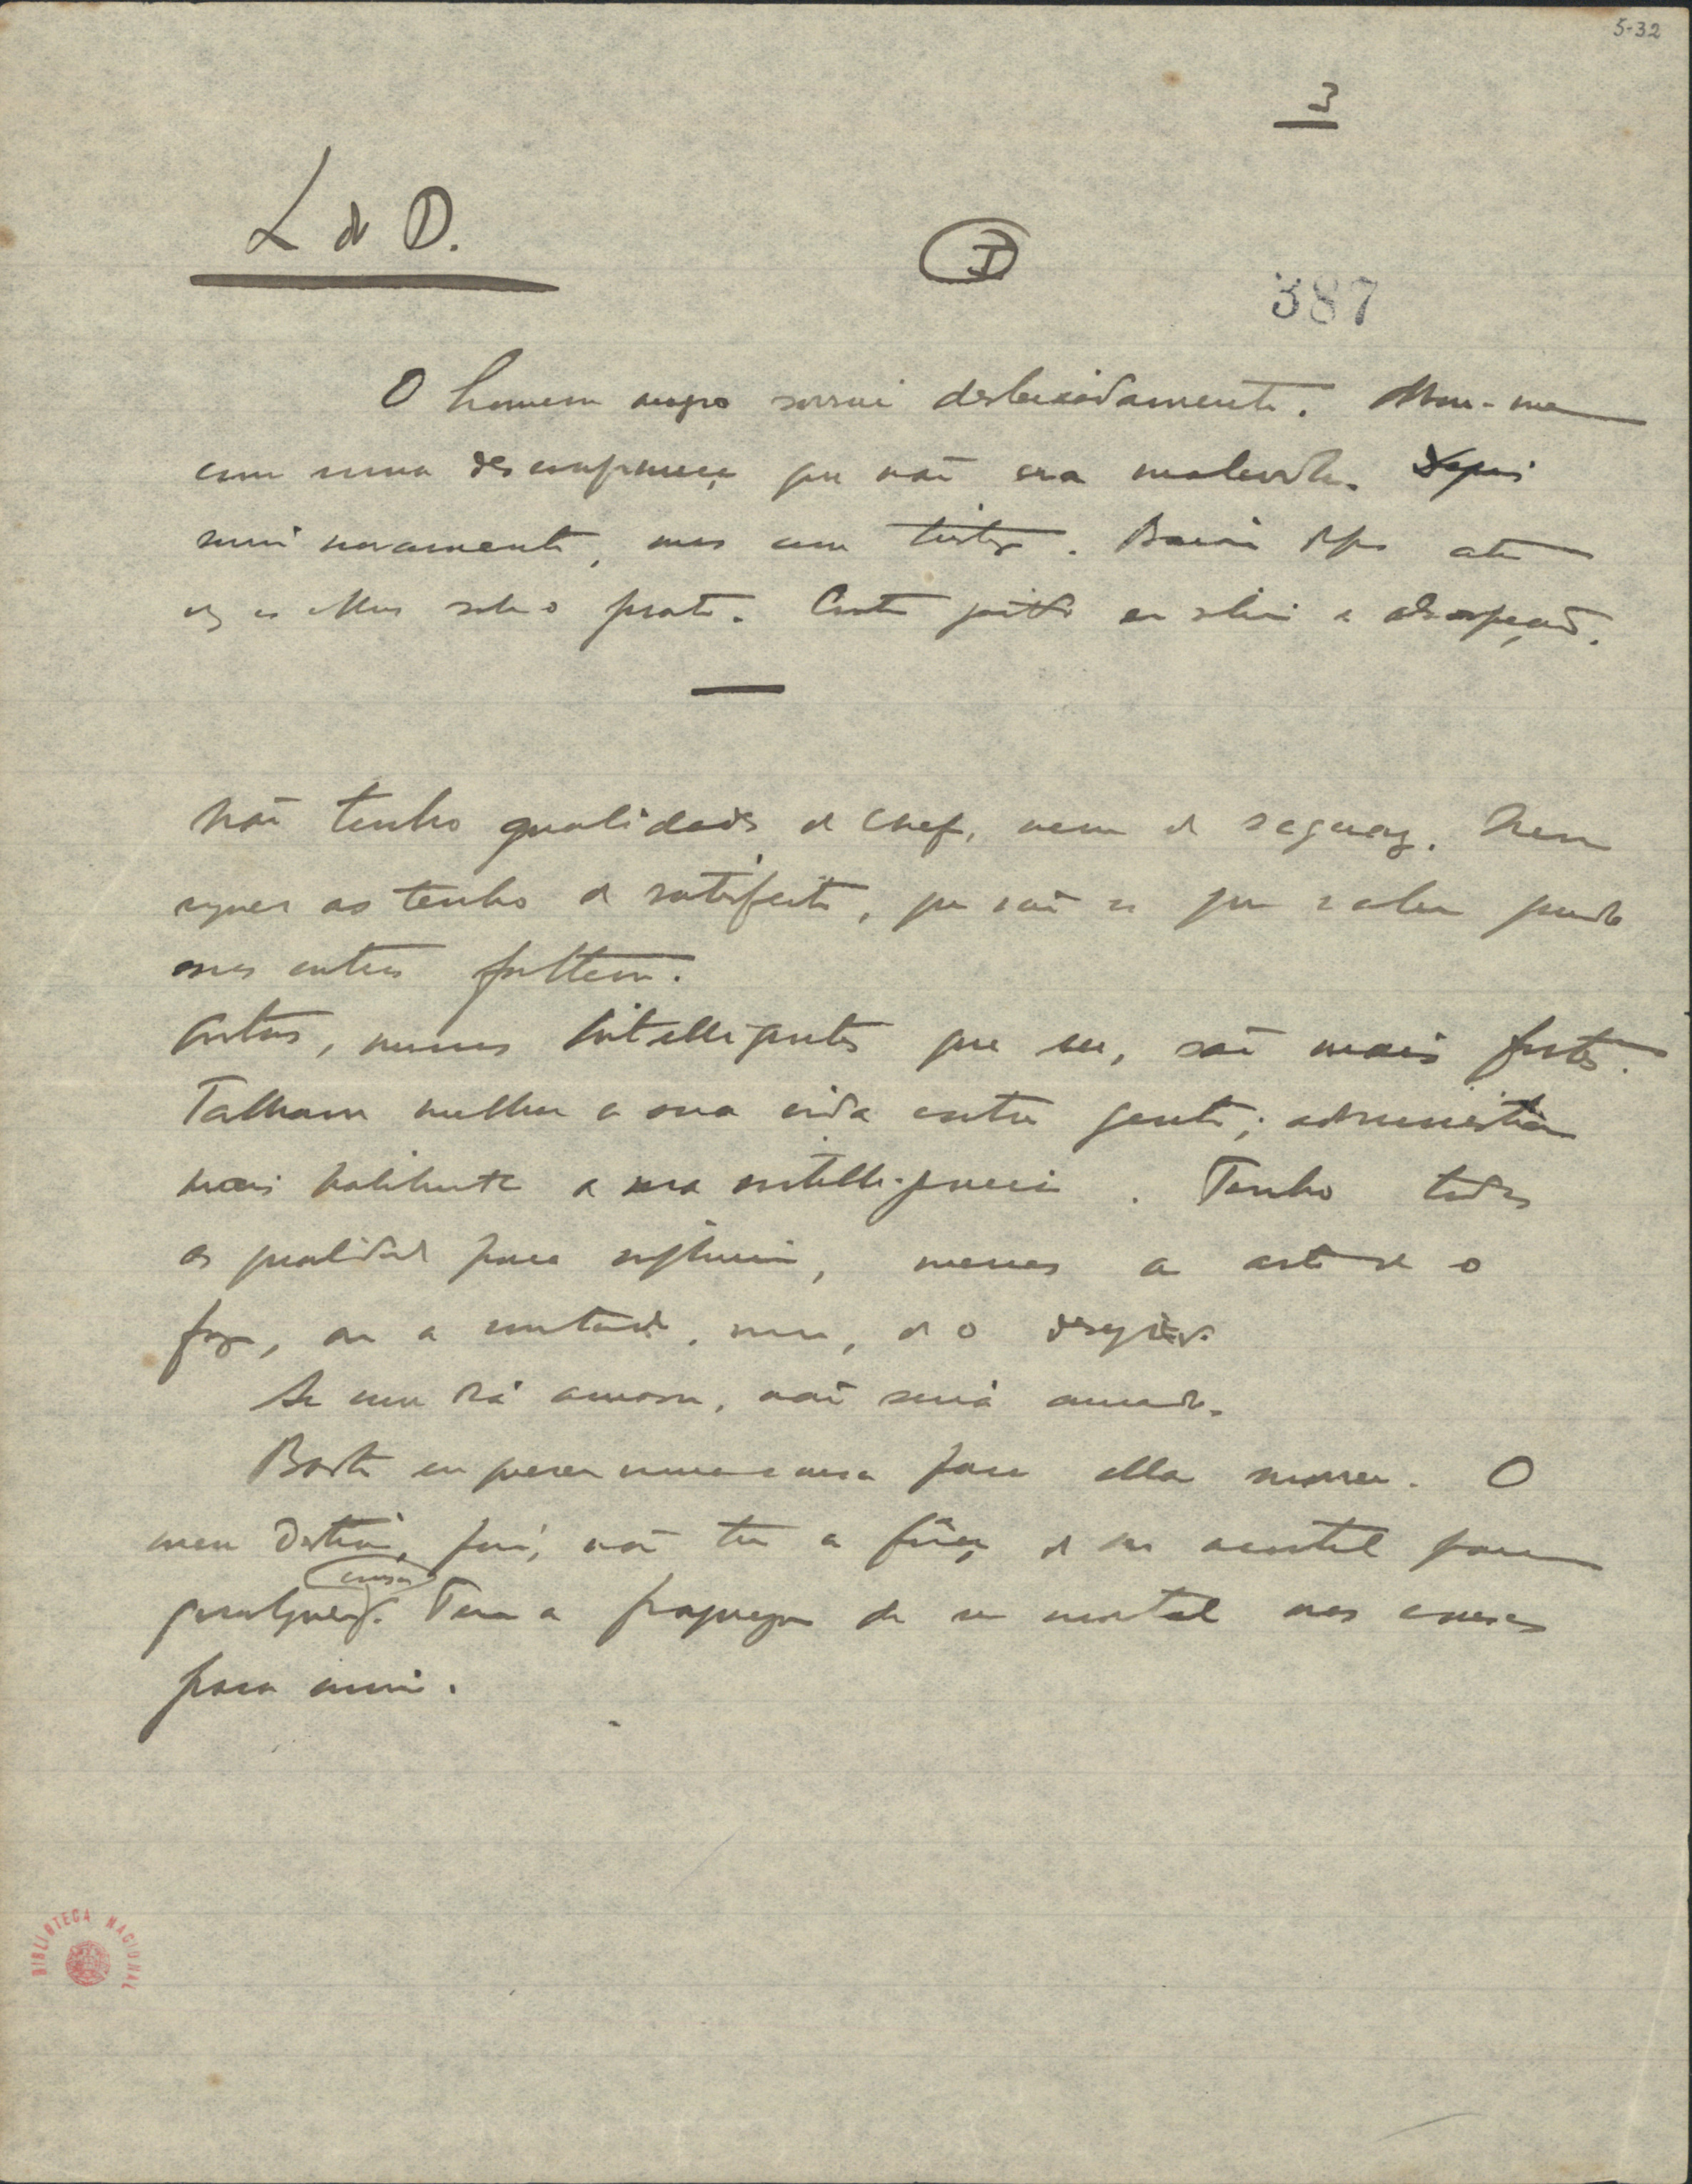 5-32
3
L do D.
I
387
O homem magro sorriu desleixadamente. Mirou-me
com uma desconfiança que não era malevola. Depois
sorriu novamente, mas com tristeza. Baixou depois outra
vez os olhos sobre o prato. Continuou jantando em silencio e absorpção.
Não tenho qualidades de chefe, nem de sequaz. Nem
sequer as tenho de satisfeito, que são as que valem quando
essas outras faltem.
Outros, menos intelligentes que eu, são mais fortes.
Talham melhor a sua vida entre gente; administram
mais habilmente a sua intelligencia. Tenho todas
as qualidades para influir, menos a arte de o
fazer, ou a vontade, mesmo, de o desejar.
Se um dia amasse, não seria amado.
Basta eu querer uma cousa para ella morrer. O
meu destino, porém, não tem a força de ser mortal para
cousa
qualquer. Tem a fraqueza de ser mortal nas cousas
para mim.
BIBLIOTECA NACIONAL